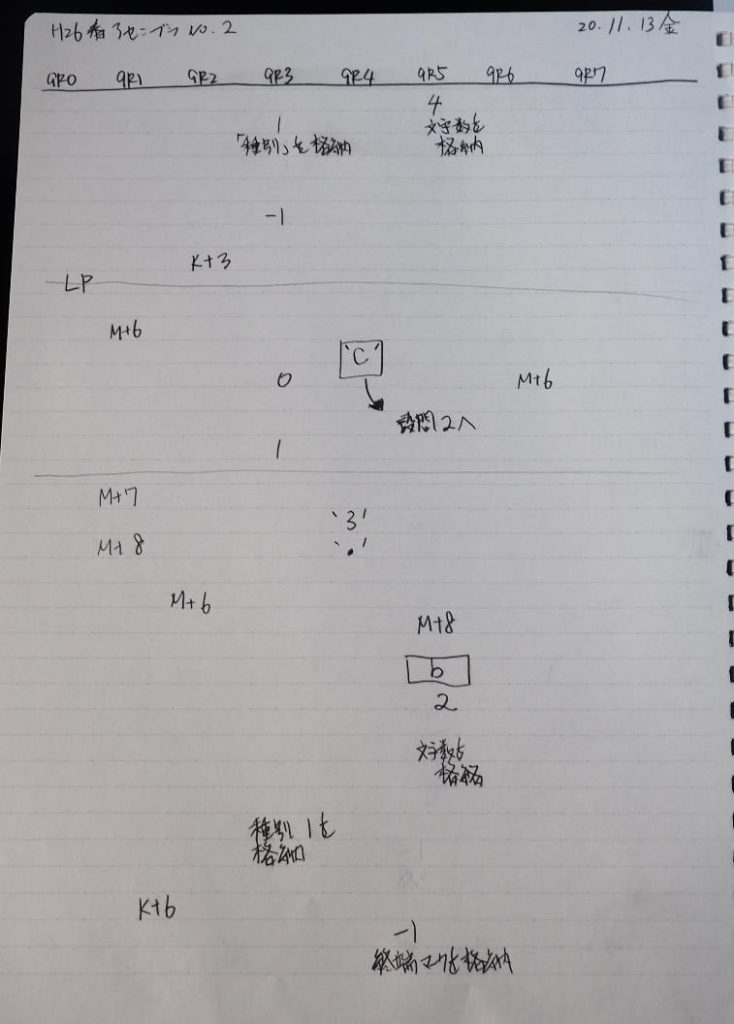 H26春アセンブラ No.2 20.11.13金
GR0 GR1 GR2 GR3 GR4 GR5 GR6 GR7
4
1 文字数を
「種別」を格納 格納
-1
K+3
LP
M+6
'C'
0 M+6
設問2へ
1
M+7
'3'
M+8 '.'
M+6
M+8
b
2
文字数を
格納
種別1を
格納
K+6
-1
終端マークを格納